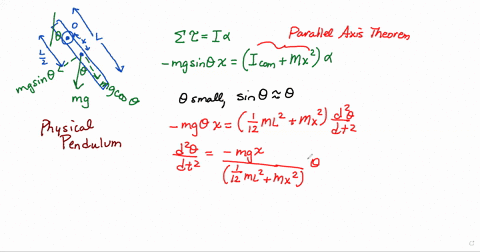 θ
O
L
L/2
x
θ
mg sinθ
mg cosθ
mg
Physical
Pendulum
Στ = Iα
Parallel Axis Theorem
-mg sinθ x = (I_com + Mx²) α
θ small, sin θ ≈ θ
-mgθ x = (1/12 mL² + Mx²) d²θ/dt²
d²θ/dt² = -mgx/(1/12 mL² + Mx²) θ